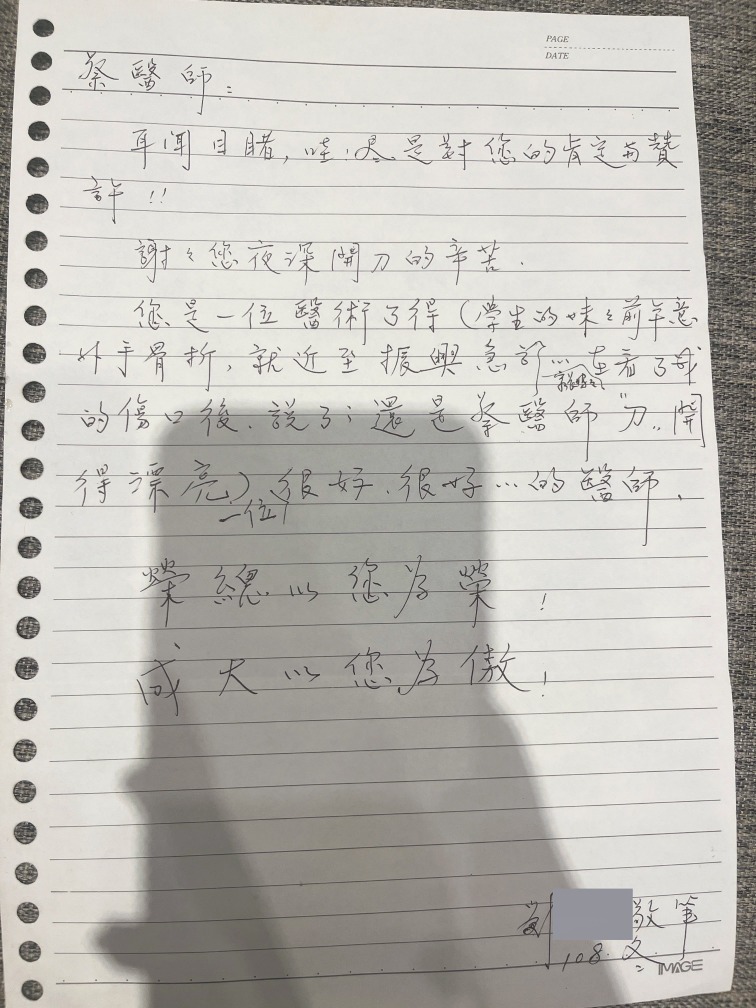 PAGE
DATE
蔡醫師：
耳聞目睹，哇！盡是對您的肯定與贊
許！！
謝々您夜深開刀的辛苦．
您是一位醫術了得（學生的妹々前年意
外手骨折，就近至振興急診…在看了我
的傷口後．說了；還是蔡醫師"刀"開
得漂亮）很好．很好…的醫師．
一位
榮總以您為榮！
成大以您為傲！
敬筆
108.
IMAGE